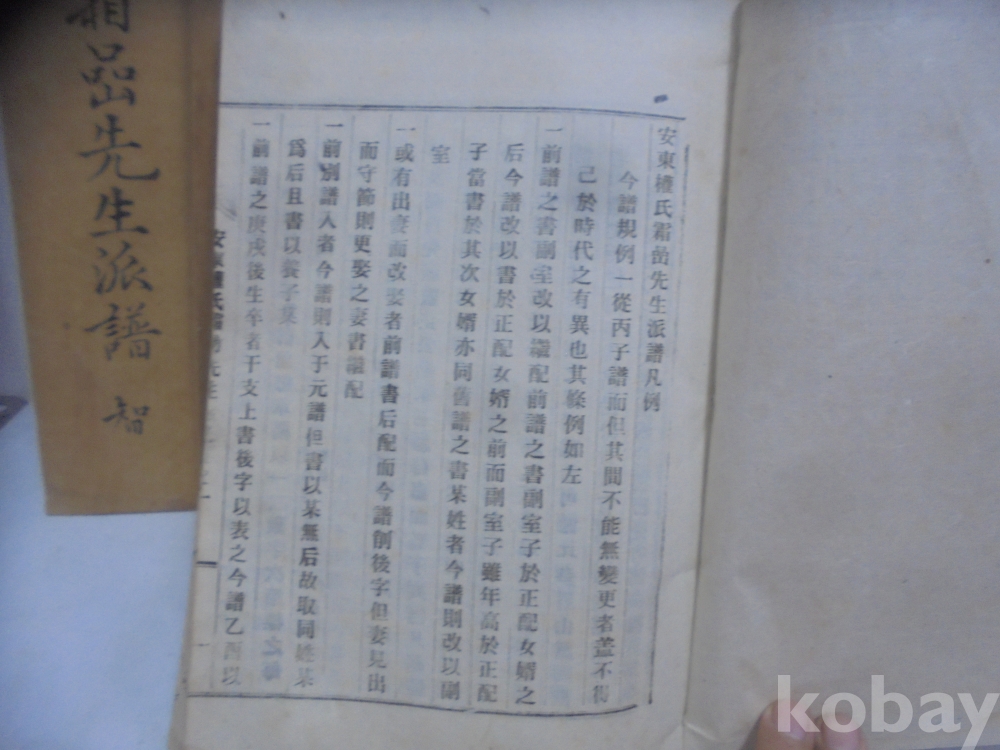 安東權氏霜嵒先生派譜凡例
今譜規例一從丙子譜而但其間不能無變更者盖不得
已於時代之有異也其條例如左
一前譜之書副室改以繼配前譜之書副室子於正配女婿之
后今譜改以書於正配女婿之前而副室子雖年高於正配
子當書於其次女婿亦同舊譜之書某姓者今譜則改以副
室
一或有出妻而改娶者前譜書后配而今譜削後字但妻見出
而守節則更娶之妻書繼配
一前別譜入者今譜則入于元譜但書以某無后故取同姓某
爲后且書以養子某
一前譜之庚戌後生卒者干支上書後字以表之今譜乙酉以
安東權氏霜
先生
一
嵒先生派譜
智
kobay